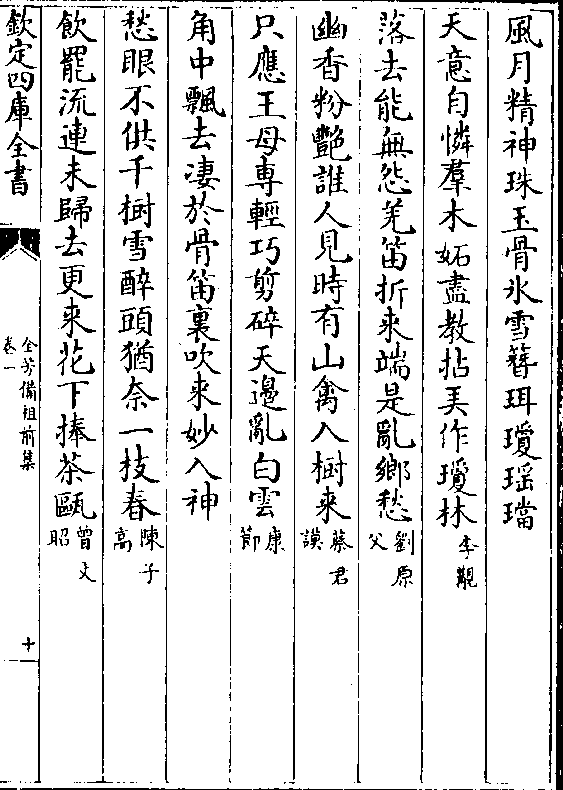 風月精神珠玉骨氷雪簪珥瓊瑶璫
天意自憐羣木妬盡教拈美作瓊林李覯
落去能無怨羌笛折来端是亂鄉愁劉原父
幽香粉艷誰人見時有山禽入樹来蔡君謨
只應王母専輕巧剪碎天邊亂白雲康節
角中飄去凄於骨笛裏吹来妙入神
愁眼不供千樹雪醉頭猶奈一枝春陳子高
飲罷流連未歸去更来花下捧茶甌曾文昭
欽定四庫全書
全芳備祖前集
卷一
十